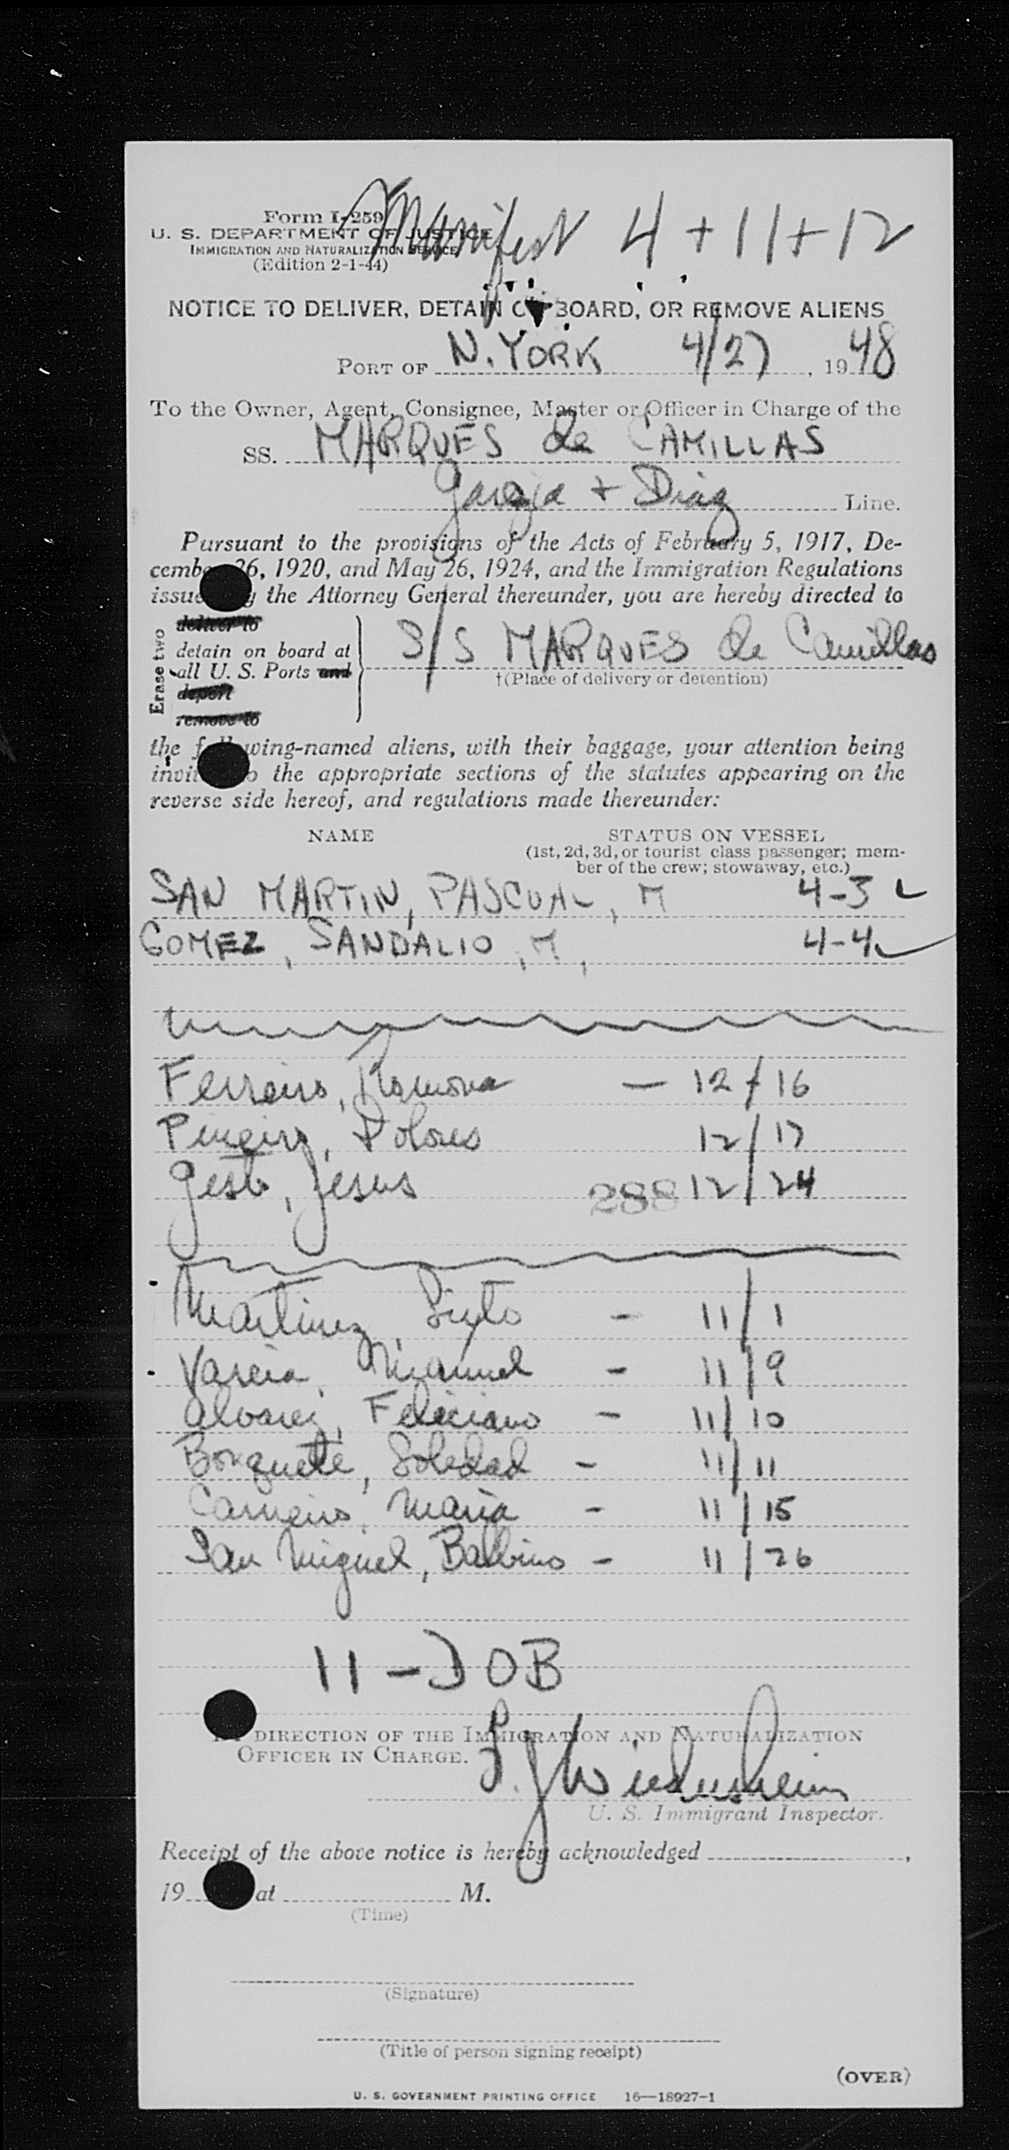 Manifest 4 + 11 + 12
Form I-259
U. S. DEPARTMENT OF JUSTICE
IMMIGRATION AND NATURALIZATION SERVICE
(Edition 2-1-44)
NOTICE TO DELIVER, DETAIN ON BOARD, OR REMOVE ALIENS
PORT OF N. YORK 4/27, 1948
To the Owner, Agent, Consignee, Master or Officer in Charge of the
SS. MARQUES de CAMILLAS
Garcia + Diaz Line.
Pursuant to the provisions of the Acts of February 5, 1917, De-
cember 26, 1920, and May 26, 1924, and the Immigration Regulations
issued by the Attorney General thereunder, you are hereby directed to
Erase two
deliver to
detain on board at
all U. S. Ports and
deport
remove to
S/S MARQUES de Camillas
†(Place of delivery or detention)
the following-named aliens, with their baggage, your attention being
invited to the appropriate sections of the statutes appearing on the
reverse side hereof, and regulations made thereunder:
NAME STATUS ON VESSEL
(1st, 2d, 3d, or tourist class passenger; mem-
ber of the crew; stowaway, etc.)
SAN MARTIN, PASCUAL, M 4-3
GOMEZ, SANDALIO, M, 4-4
Ferreiro, Ramona — 12/16
Pineiro, Dolores 12/17
Gesto, Jesus 288 12/24
Martinez, Sixto - 11/1
Varela, Manuel - 11/9
Alvarez, Feliciano - 11/10
Bouquete, Soledad - 11/11
Carneiro, Maria - 11/15
San Miguel, Balbino - 11/26
11 - DOB
BY DIRECTION OF THE IMMIGRATION AND NATURALIZATION
OFFICER IN CHARGE.
U. S. Immigrant Inspector.
Receipt of the above notice is hereby acknowledged ,
19 at M.
(Time)
(Signature)
(Title of person signing receipt)
(OVER)
U. S. GOVERNMENT PRINTING OFFICE 16—18927-1